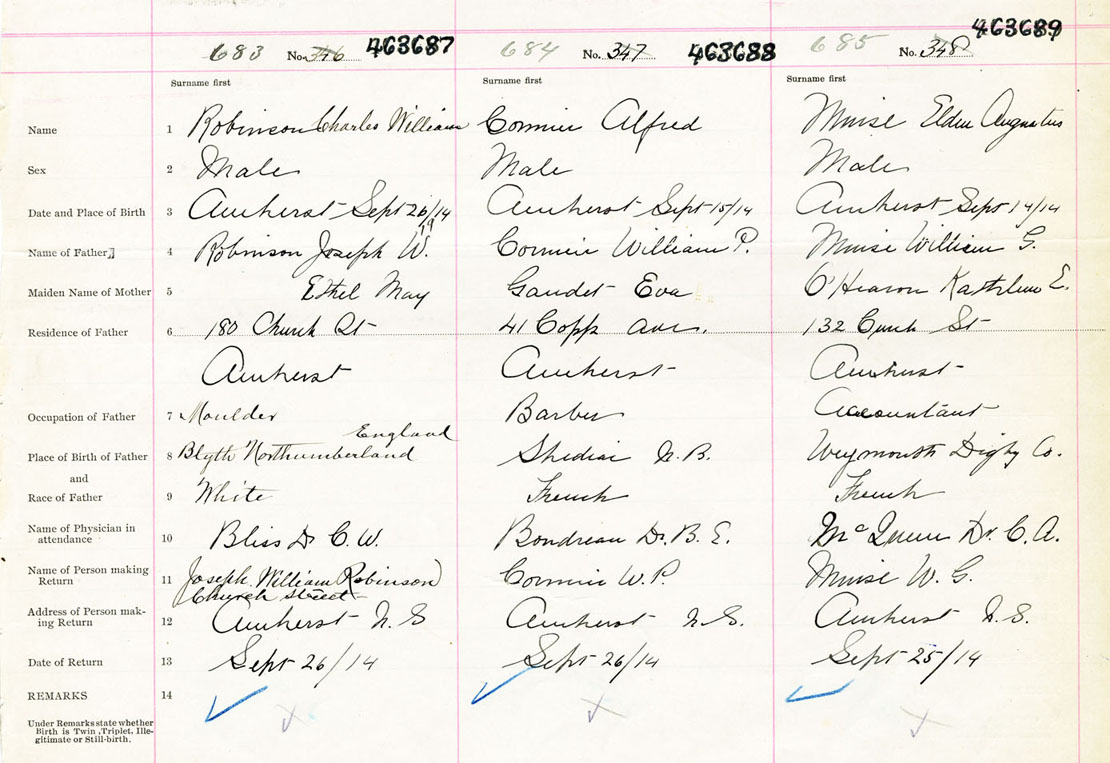 683 No. 346 463687 684 No. 347 463688 685 No. 348 463689
Surname first Surname first Surname first
Name 1 Robinson Charles William Cormier Alfred Muise Elden Augustus
Sex 2 Male Male Male
Date and Place of Birth 3 Amherst Sept 26/14 Amherst Sept 15/14 Amherst Sept 14/14
Name of Father 4 Robinson Joseph W. Cormier William P. Muise William G.
Maiden Name of Mother 5 Ethel May Gaudet Eva O'Hearon Kathleen E.
Residence of Father 6 180 Church St 41 Copp Ave. 132 St
Amherst Amherst Amherst
Occupation of Father 7 Moulder Barber Accountant
England
Place of Birth of Father 8 Blyth Northumberland Shediac N.B. Weymouth Digby Co.
and
Race of Father 9 White French French
Name of Physician in
attendance 10 Bliss Dr C.W. Boudreau Dr. B.E. Dr. C.A.
Name of Person making
Return 11 Joseph William Robinson Cormier W.P. Muise W.G.
Church Street
Address of Person mak-
ing Return 12 Amherst N.S Amherst N.S. Amherst N.S.
Date of Return 13 Sept 26/14 Sept 26/14 Sept 25/14
REMARKS 14
Under Remarks state whether
Birth is Twin, Triplet, Ille-
gitimate or Still-birth.